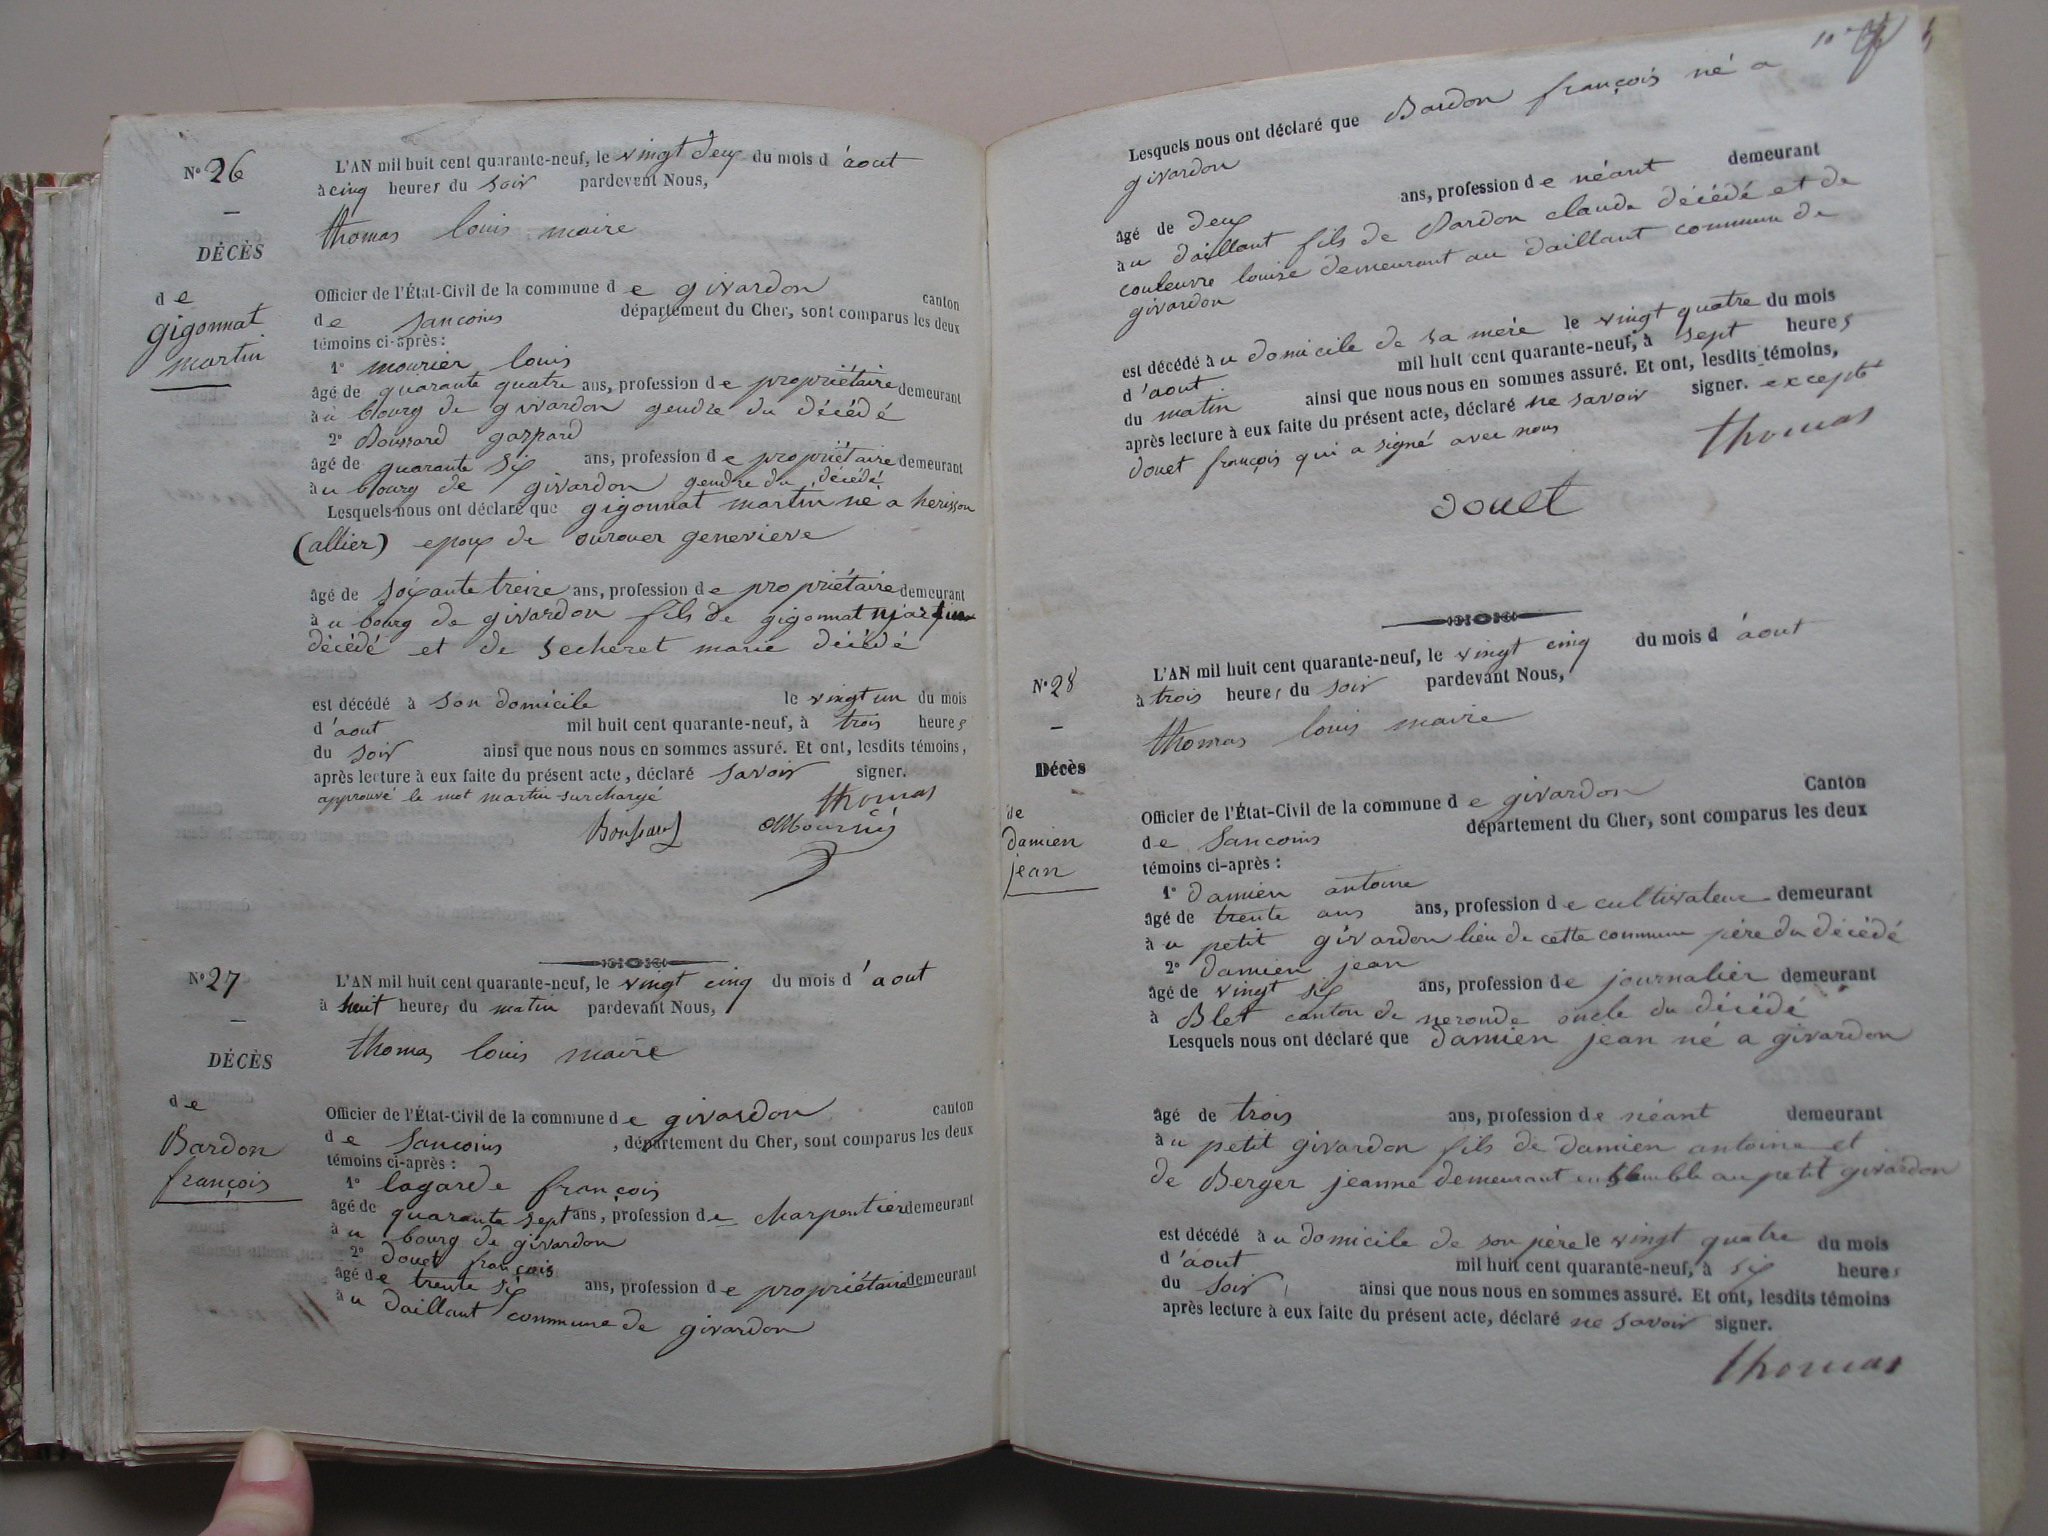 N° 26
DÉCÈS
de
gigonnat
martin
L'AN mil huit cent quarante-neuf, le vingt deux du mois d'aout
à cinq heures du soir pardevent Nous,
thomas louis maire
Officier de l'État-Civil de la commune de givardon canton
de sancoins département du Cher, sont comparus les deux
témoins ci-après :
1° mourier louis
âgé de quarante quatre ans, profession de propriétaire demeurant
à u bourg de givardon gendre du décédé
2° Boussard gaspard
âgé de quarante six ans, profession de propriétaire demeurant
à u bourg de givardon gendre du décédé
Lesquels nous ont déclaré que gigonnat martin né a herisson
(allier) epoux de ourouer genevieve
âgé de soixante treize ans, profession de propriétaire demeurant
à u bourg de givardon fils de gigonnat
décédé et de secheret marie décédé
est décédé à son domicile le vingt un du mois
d'aout mil huit cent quarante-neuf, à trois heures
du soir ainsi que nous nous en sommes assuré. Et ont, lesdits témoins,
après lecture à eux faite du présent acte, déclaré savoir signer.
approuvé le mot martin surchargé
thomas
Boussard Mouriés
N° 27
DÉCÈS
de
Bardon
françois
L'AN mil huit cent quarante-neuf, le vingt cinq du mois d'aout
à huit heures du matin pardevant Nous,
thomas louis maire
Officier de l'État-Civil de la commune de givardon canton
de sancoins , département du Cher, sont comparus les deux
témoins ci-après :
1° lagarde françois
âgé de quarante sept ans, profession de charpentier demeurant
à u bourg de givardon
2° douet françois
âgé de trente six ans, profession de propriétaire demeurant
à u daillant commune de givardon
10
Lesquels nous ont déclaré que Bardon françois né a
givardon
âgé de deux ans, profession de néant demeurant
à u daillant fils de Bardon claude décédé et de
couleuvre louise demeurant au daillant commune de
givardon
est décédé à u domicile de sa mère le vingt quatre du mois
d'aout mil huit cent quarante-neuf, à sept heures
du matin ainsi que nous nous en sommes assuré. Et ont, lesdits témoins,
après lecture à eux faite du présent acte, déclaré ne savoir signer. excepté
douet françois qui a signé avec nous
thomas
douet
N° 28
Décès
de
damien
jean
L'AN mil huit cent quarante-neuf, le vingt cinq du mois d'aout
à trois heures du soir pardevant Nous,
thomas louis maire
Officier de l'État-Civil de la commune de givardon Canton
de sancoins département du Cher, sont comparus les deux
témoins ci-après :
1° damien antoine
âgé de trente ans ans, profession de cultivateur demeurant
à u petit givardon lieu de cette commune père du décédé
2° damien jean
âgé de vingt six ans, profession de journalier demeurant
à Blet canton de neronde oncle du décédé
Lesquels nous ont déclaré que damien jean né a givardon
âgé de trois ans, profession de néant demeurant
à u petit givardon fils de damien antoine et
de Berger jeanne demeurant ensemble au petit givardon
est décédé à u domicile de son père le vingt quatre du mois
d'aout mil huit cent quarante-neuf, à six heures
du soir ainsi que nous nous en sommes assuré. Et ont, lesdits témoins
après lecture à eux faite du présent acte, déclaré ne savoir signer.
thomas